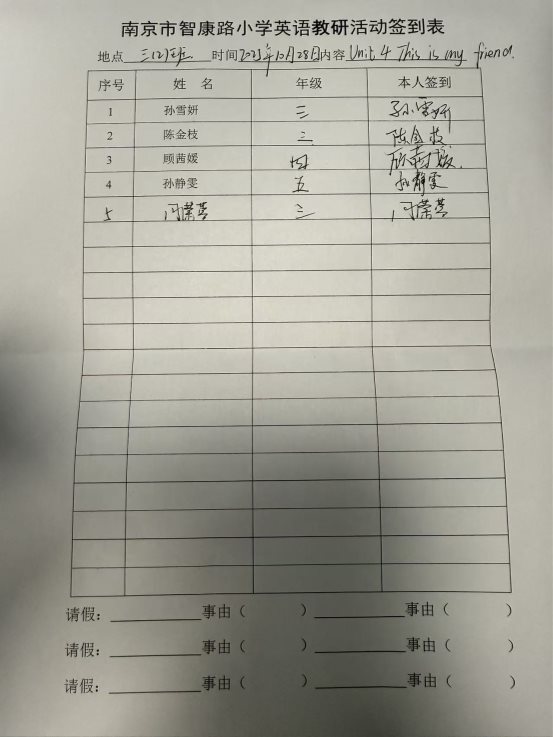 南京市智康路小学英语教研活动签到表
地点 三(2)班 时间 2025年10月28日 内容 Unit 4 This is my friend.
序号 姓名 年级 本人签到
1 孙雪妍 三 孙雪妍
2 陈金枝 三 陈金枝
3 顾茜媛 四 顾茜媛
4 孙静雯 五 孙静雯
5 闫荣芸 三 闫荣芸
请假: 事由( ) 事由( )
请假: 事由( ) 事由( )
请假: 事由( ) 事由( )